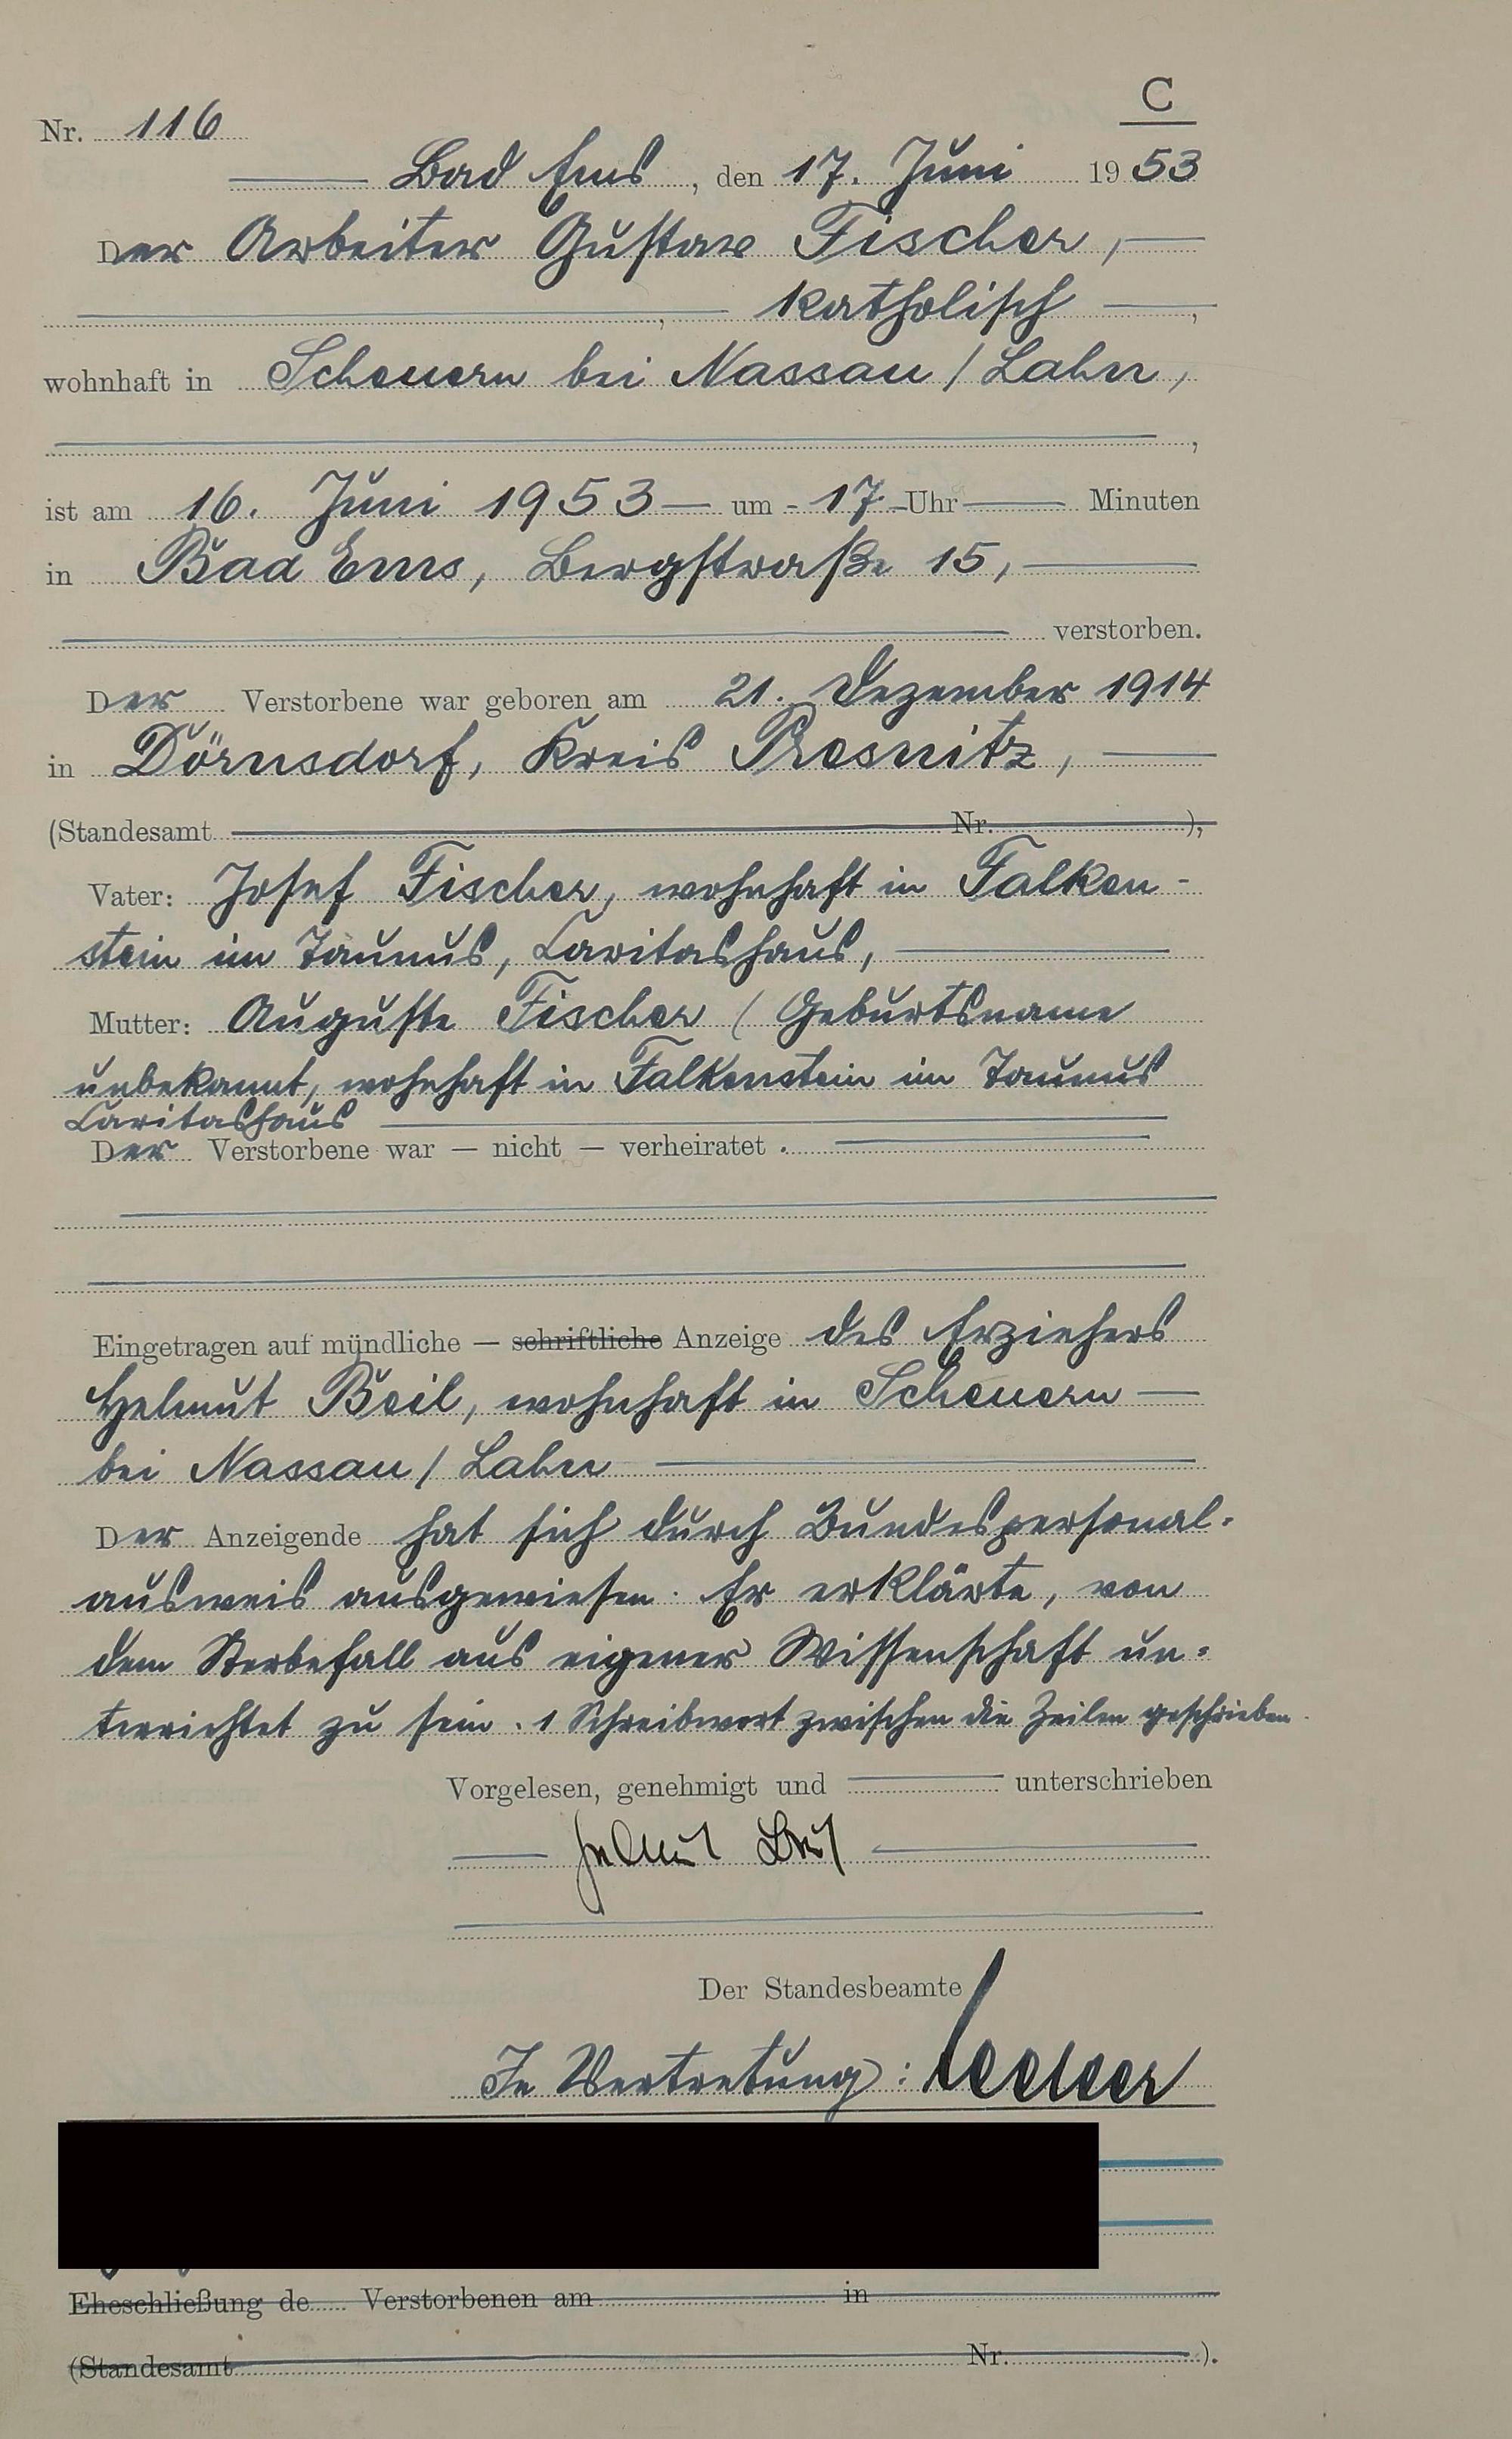 C
Nr. 116
Bad Ems, den 17. Juni 1953
Der Arbeiter Gustav Fischer,
, katholisch ,
wohnhaft in Scheuern bei Nassau / Lahn,
,
ist am 16. Juni 1953 um 17 Uhr Minuten
in Bad Ems, Bergstraße 15,
verstorben.
Der Verstorbene war geboren am 21. Dezember 1914
in Dörnsdorf, Kreis Presnitz,
(Standesamt Nr. ),
Vater: Josef Fischer, wohnhaft in Falken-
stein im Taunus, Caritashaus,
Mutter: Auguste Fischer (Geburtsname
unbekannt, wohnhaft in Falkenstein im Taunus
Caritashaus
Der Verstorbene war — nicht — verheiratet .
Eingetragen auf mündliche — schriftliche Anzeige des Erziehers
Helmut Beil, wohnhaft in Scheuern
bei Nassau / Lahn
Der Anzeigende hat sich durch Bundespersonal-
ausweis ausgewiesen. Er erklärte, von
dem Sterbefall aus eigener Wissenschaft un-
terrichtet zu sein. 1 Schreibwort zwischen die Zeilen geschrieben.
Vorgelesen, genehmigt und unterschrieben
Helmut Beil
Der Standesbeamte
In Vertretung:
Eheschließung de Verstorbenen am in
(Standesamt Nr. ).